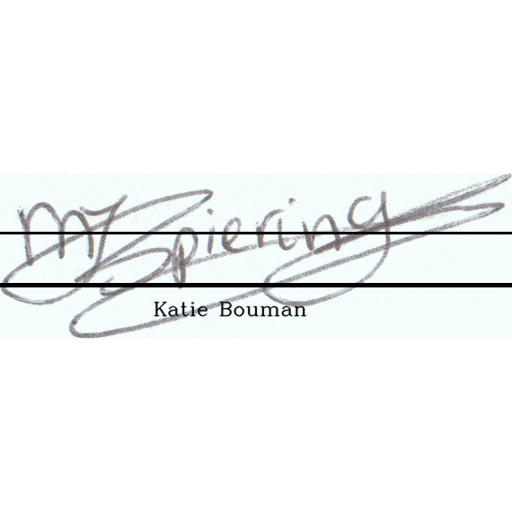 MJSpiering
Katie Bouman